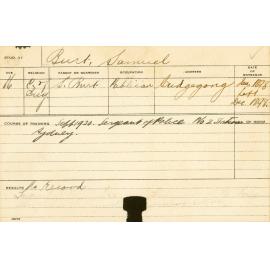 STUD. AT
Burt, Samuel
AGE RELIGION PARENT OR GUARDIAN OCCUPATION ADDRESS DATE OF ENTRANCE
16 C of Eng S. Burt Publican Cudgegong Jan. 1878
Left
Dec. 1878.
COURSE OF TRAINING Sept. 1920. Sergeant of Police No 2 Station
Sydney.
RESULTS No Record
NOW AT